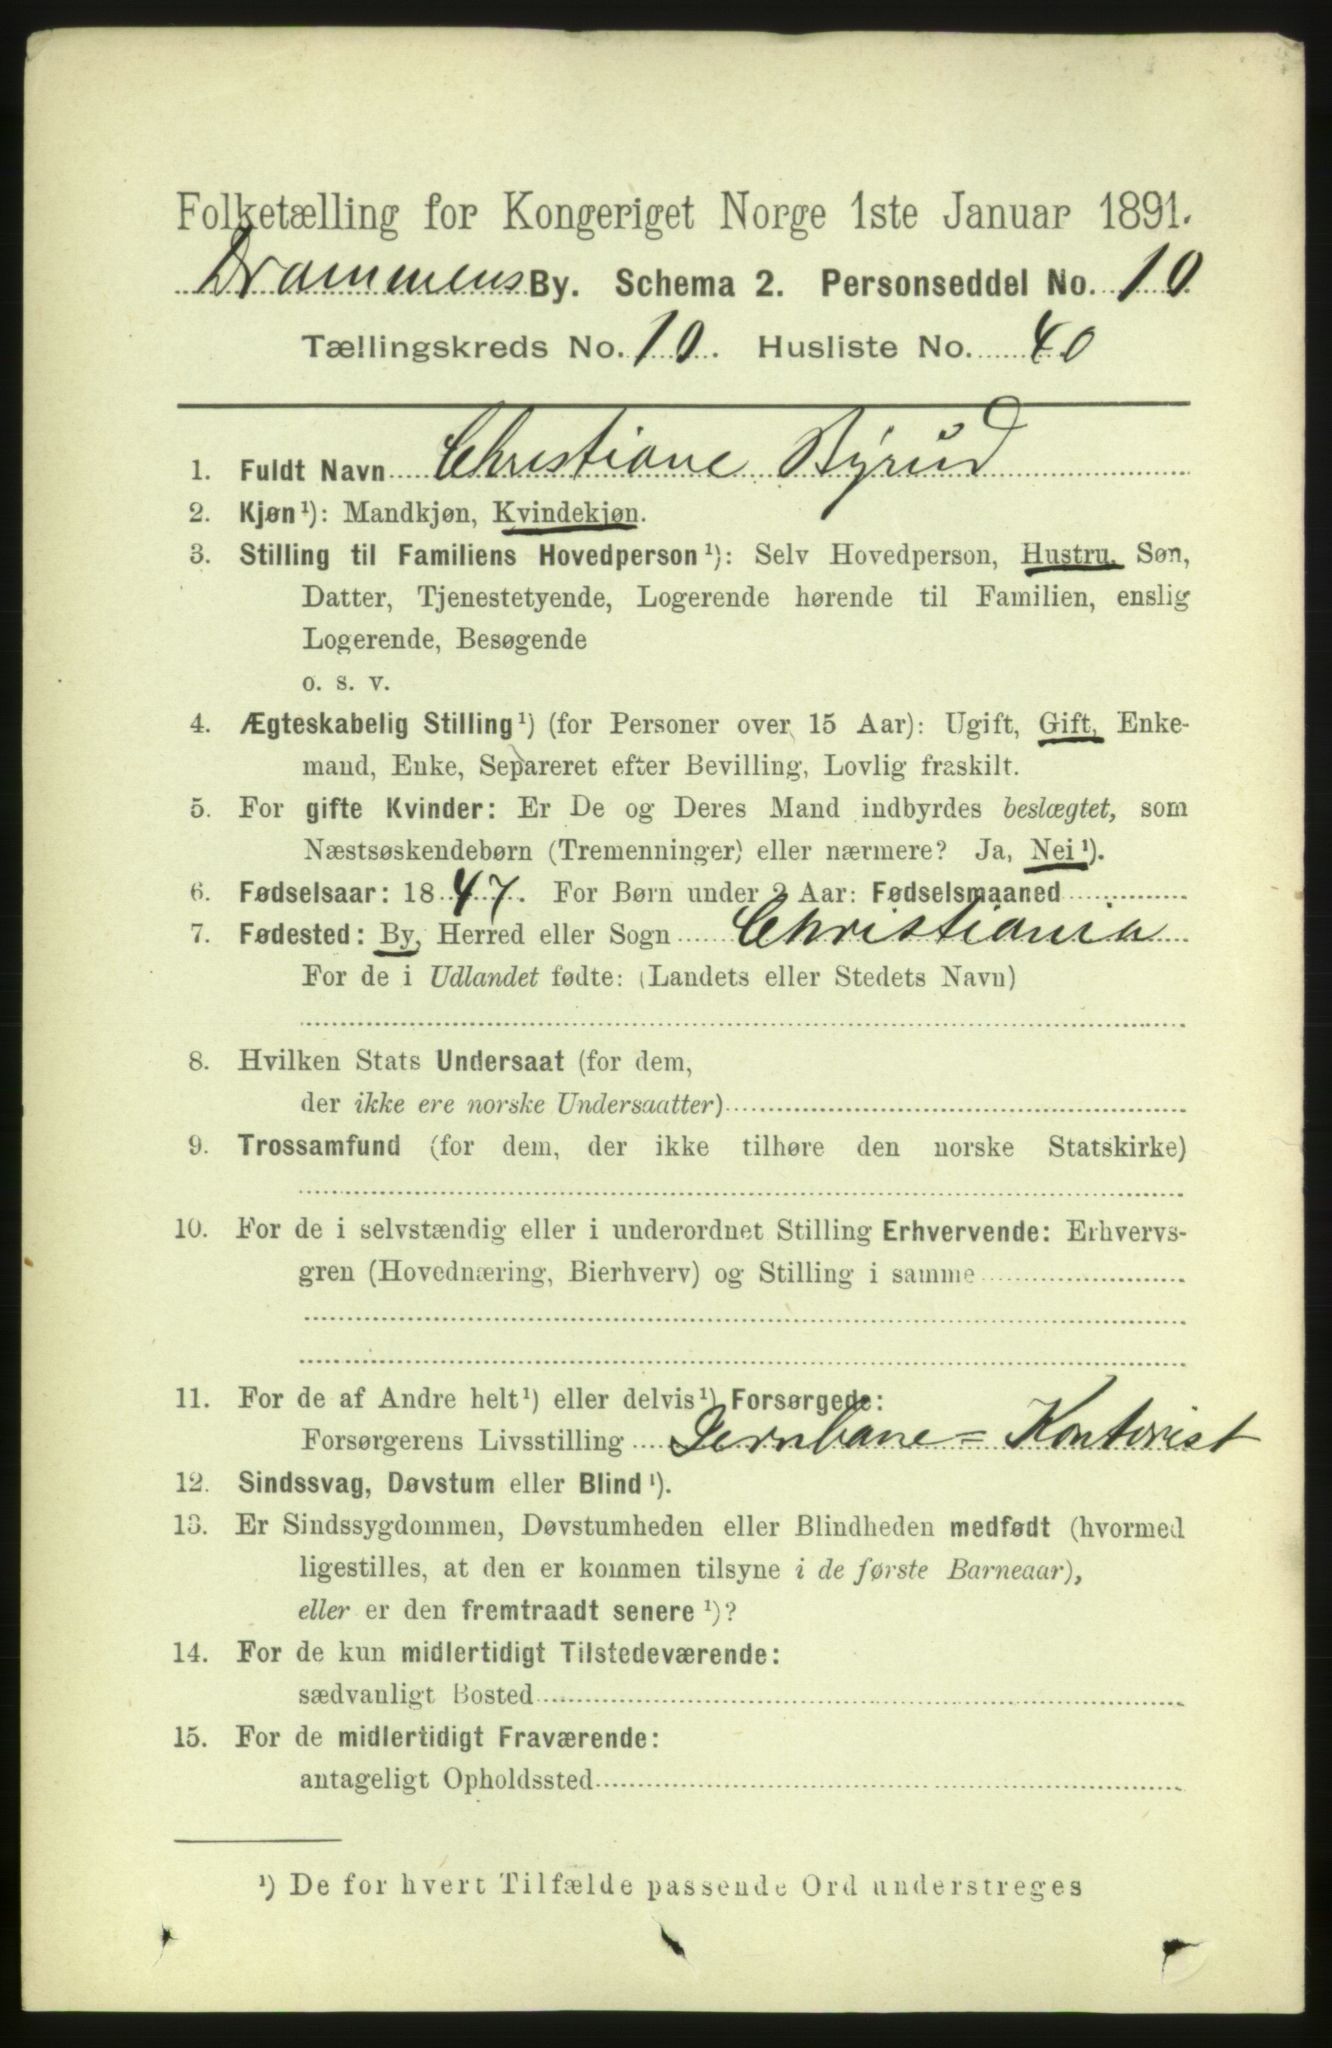 Folketælling for Kongeriget Norge 1ste Januar 1891.
Drammens By. Schema 2. Personseddel No. 10
Tællingskreds No. 10. Husliste No. 40
1. Fuldt Navn Christiane Byrud
2. Kjøn¹): Mandkjøn, Kvindekjøn.
3. Stilling til Familiens Hovedperson¹): Selv Hovedperson, Hustru, Søn,
Datter, Tjenestetyende, Logerende hørende til Familien, enslig
Logerende, Besøgende
o. s. v.
4. Ægteskabelig Stilling¹) (for Personer over 15 Aar): Ugift, Gift, Enke-
mand, Enke, Separeret efter Bevilling, Lovlig fraskilt.
5. For gifte Kvinder: Er De og Deres Mand indbyrdes beslægtet, som
Næstsøskendebørn (Tremenninger) eller nærmere? Ja, Nei¹).
6. Fødselsaar: 1847. For Børn under 2 Aar: Fødselsmaaned
7. Fødested: By, Herred eller Sogn Christiania
For de i Udlandet fødte: (Landets eller Stedets Navn)
8. Hvilken Stats Undersaat (for dem,
der ikke ere norske Undersaatter)
9. Trossamfund (for dem, der ikke tilhøre den norske Statskirke)
10. For de i selvstændig eller i underordnet Stilling Erhvervende: Erhvervs-
gren (Hovednæring, Bierhverv) og Stilling i samme
11. For de af Andre helt¹) eller delvis¹) Forsørgede:
Forsørgerens Livsstilling Jernbane=Kontorist
12. Sindssvag, Døvstum eller Blind¹).
13. Er Sindssygdommen, Døvstumheden eller Blindheden medfødt (hvormed
ligestilles, at den er kommen tilsyne i de første Barneaar),
eller er den fremtraadt senere¹)?
14. For de kun midlertidigt Tilstedeværende:
sædvanligt Bosted
15. For de midlertidigt Fraværende:
antageligt Opholdssted
¹) De for hvert Tilfælde passende Ord understreges